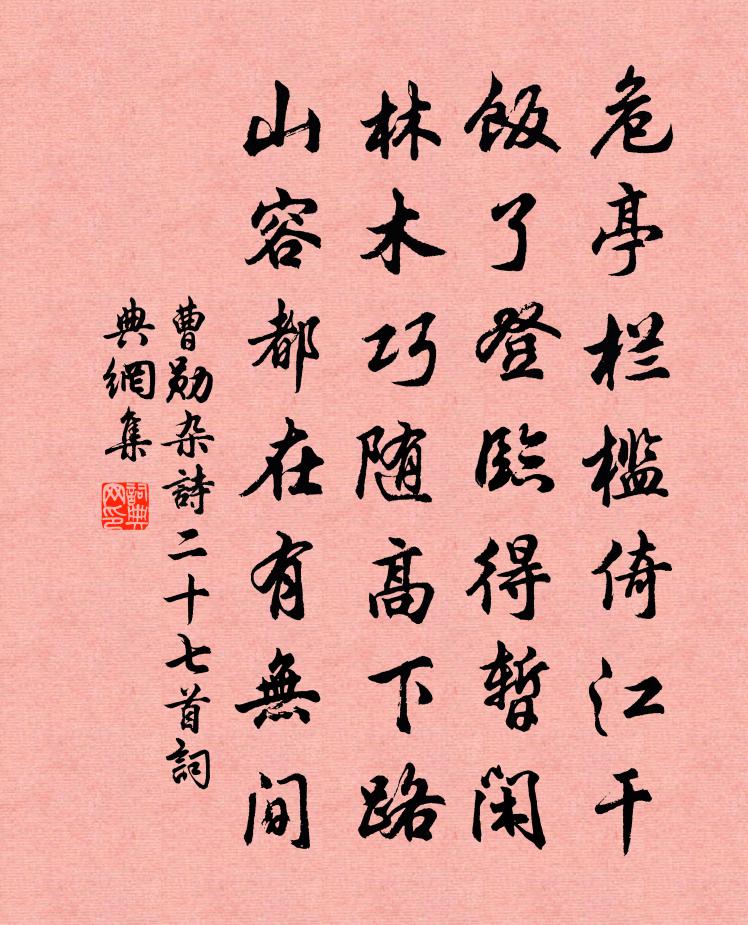 危亭栏槛倚江干
饭了登临得暂闲
林木巧随高下路
山容都在有無间
曹勋杂詩二十七首詞
典網集
詞典网印